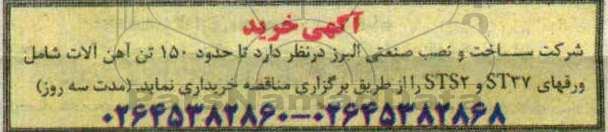 آگهی خرید
شرکت ساخت و نصب صنعتی البرز درنظر دارد تا حدود ۱۵۰ تن آهن آلات شامل
ورقهای ST۳۷ و STS۲ را از طریق برگزاری مناقصه خریداری نماید. (مدت سه روز)
۰۲۶۴۵۳۸۲۸۶۰–۰۲۶۴۵۳۸۲۸۶۸